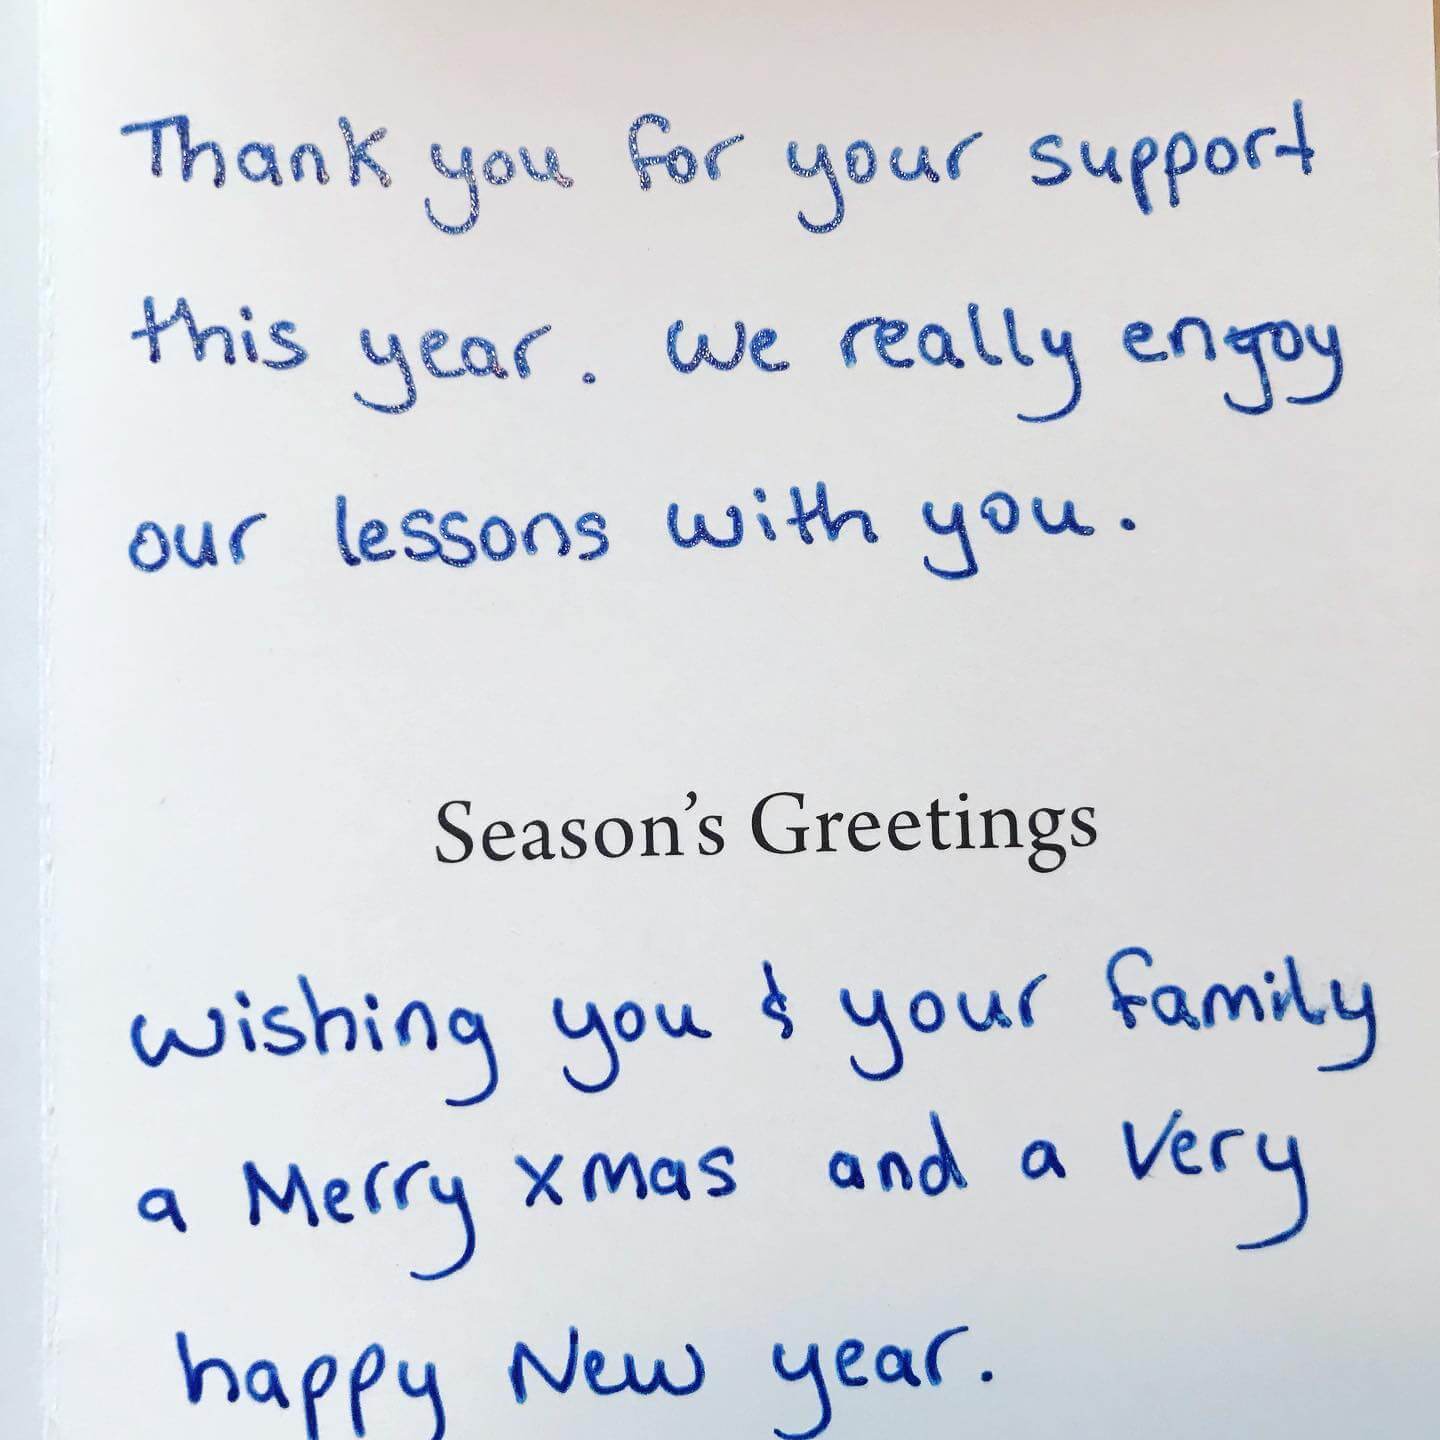 Thank you for your support
this year. We really enjoy
our lessons with you.
Season's Greetings
Wishing you & your family
a Merry xmas and a Very
happy New year.